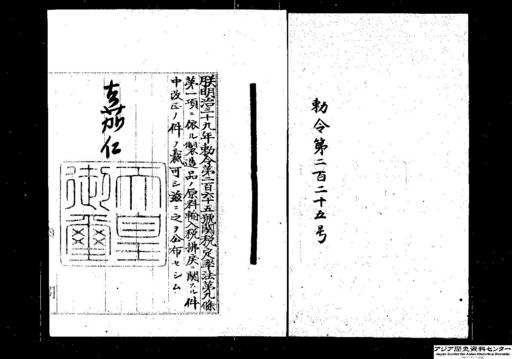 勅令第二百二十五号
朕明治三十九年勅令第二百六十五號關税定率法第九條
第一項ニ依ル製造品ノ原料輸入税拂戻ニ關スル件
中改正ノ件ヲ裁可シ茲ニ之ヲ公布セシム
嘉仁
天皇
御璽
アジア歴史資料センター
Japan Center for Asian Historical Records